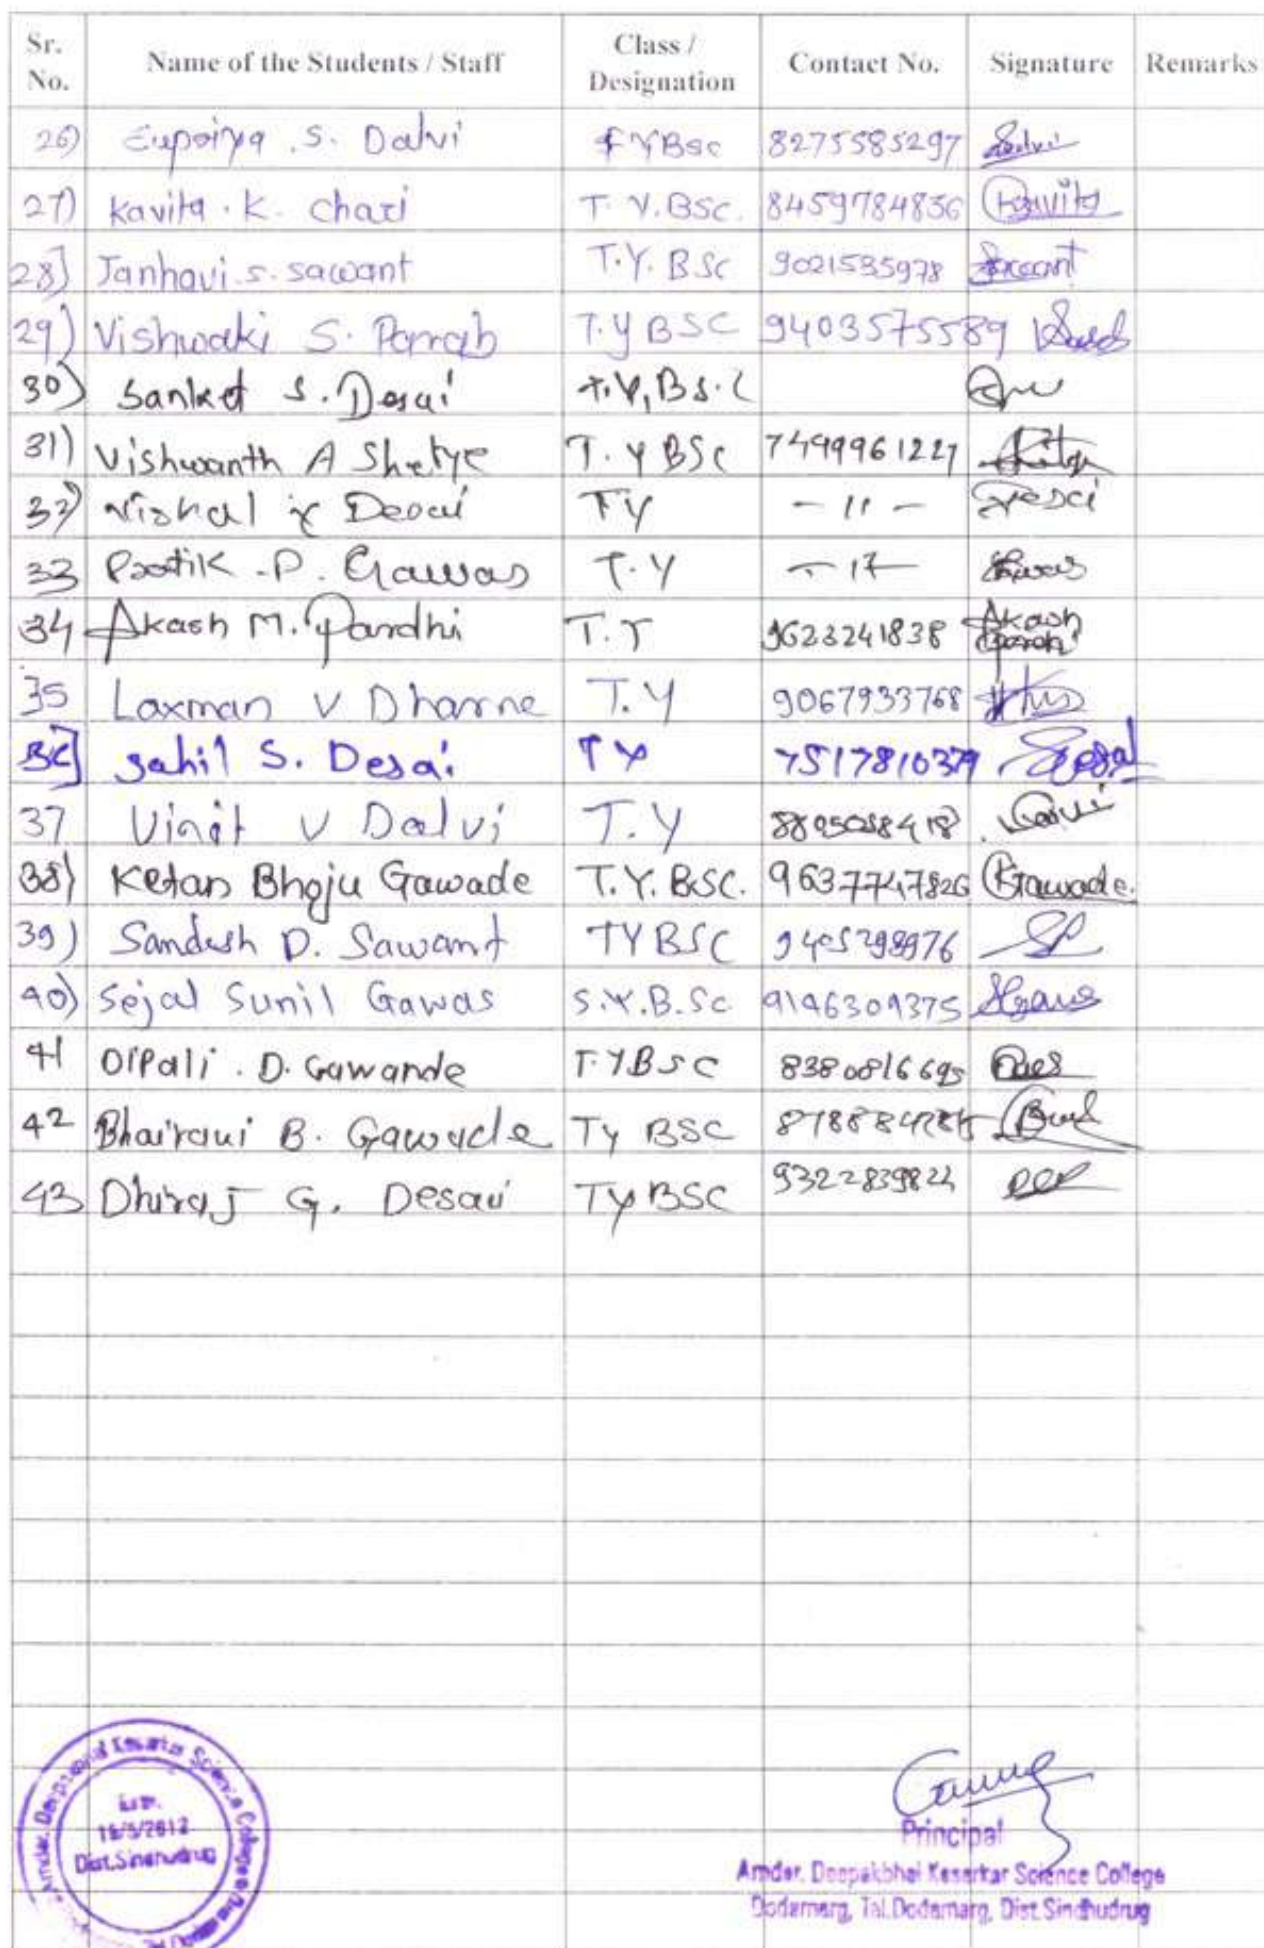 Sr. No. Name of the Students / Staff Class / Designation Contact No. Signature Remarks
26) S. Dalvi FYBsc 8275585297
27) Kavita. K. Chari T.Y.BSC. 8459784836 Kavita
28] Janhavi.s. sawant T.Y. BSc 9021535978 Sawant
29) S. Parab T.Y BSC 9403575589
30) Sanket S. Desai T.Y, Bs.c
31) Vishwanth A Shetye T.Y BSc 7499961227
32) Vishal Desai TY - 11 - Desai
33 Pratik .P. Gawas T.Y - 11 -
34 Akash M. Pardhi T.Y 9623241838 Akash
35 Laxman V Dharne T.Y 9067933768
36] Sahil S. Desai TY 7517810379 Desai
37 Vinit V Dalvi T.Y Dalvi
38) Ketan Bhoju Gawade T.Y. BSC. 9637747826 KGawade.
39) Sandesh D. Sawant TYBSC 9405298976
40) Sejal Sunil Gawas S.Y.B.Sc. 9146309375
41 DIPali . D. Gawande T.YBSC 8380816695
42 Bhairavi B. Gawade TY BSC
43 Dhiraj G. Desai TY BSC 9322839824
Amdar. Deepakbhai Kesarkar Science College
Estd.
15/5/2012
Dist.Sindhudrug
Principal
Amdar. Deepakbhai Kesarkar Science College
Dodamarg, Tal.Dodamarg, Dist.Sindhudrug